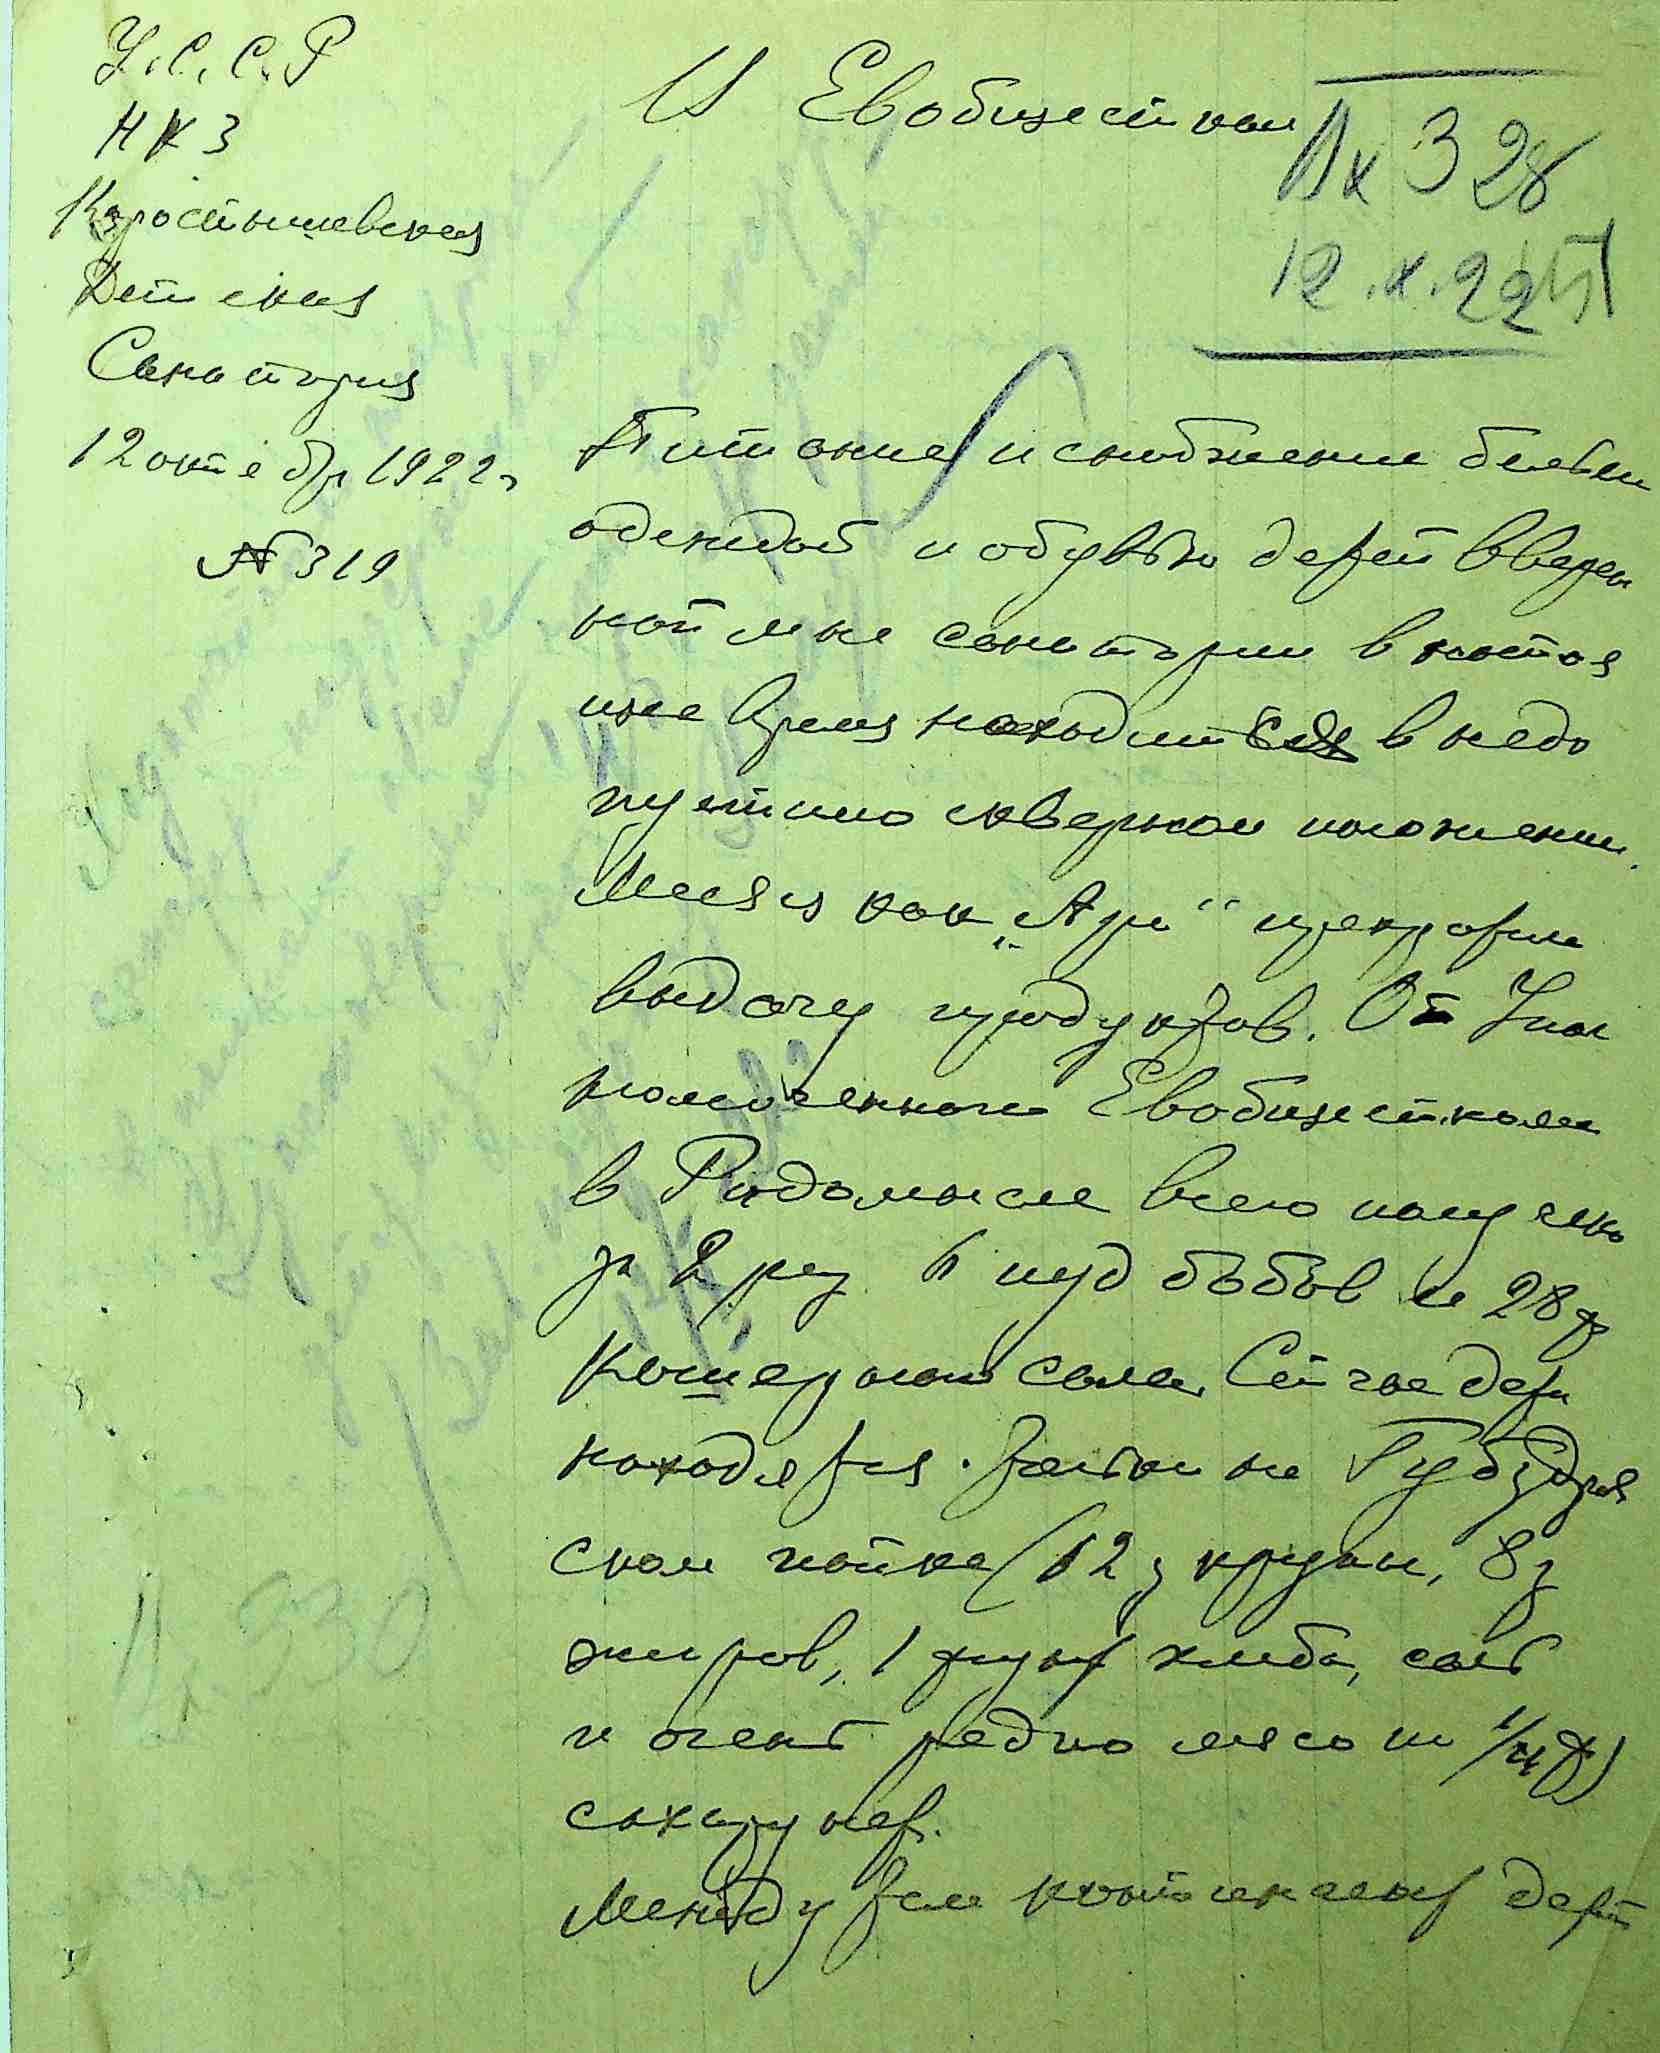 У.С.С.Р
НКЗ
Коростышевская
Детская
Санатория
12 октября 1922 г
№ 319
В Евобщестком
Вх 328
12.X.22
Питание и снабжение бельем
одеждой и обувью детей вверен
ной мне санатории в настоя
щее время находится в недо
пустимо скверном положении.
Месяц как „Ара" прекратила
выдачу продуктов. От Упол
номоченного Евобщесткома
в Радомысле всего получено
за 2 раз 1 пуд бобов и 28 ф
кошерного сала. Сейчас дети
находятся только на Губздрав
ском пайке (12 з крупы, 8 з
жиров, 1 фунт хлеба, соль
и очень редко мясо по 1/4 ф)
сахару нет.
Между тем контингент детей
Вх 330